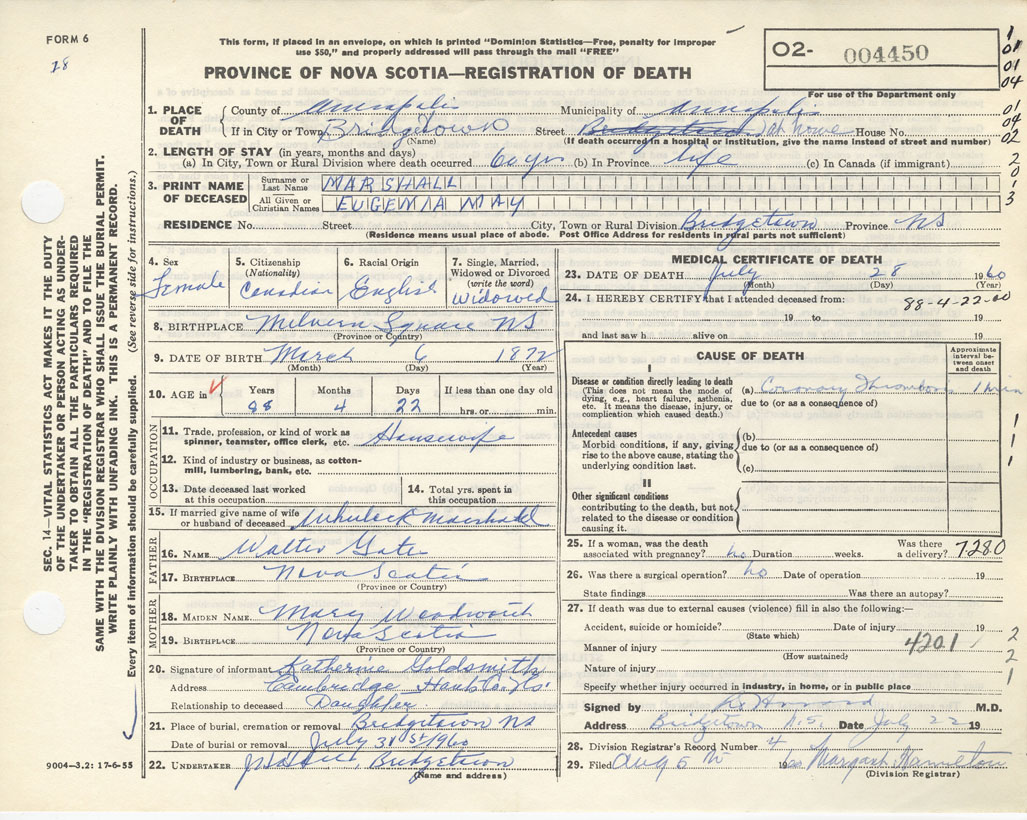 FORM 6
28
This form, if placed in an envelope, on which is printed "Dominion Statistics—Free, penalty for improper
use $50," and properly addressed will pass through the mail "FREE"
PROVINCE OF NOVA SCOTIA—REGISTRATION OF DEATH
O2- 004450
For use of the Department only
1
01
01
04
1. PLACE OF DEATH
County of Annapolis Municipality of Annapolis
If in City or Town Bridgetown Street Bridgetown at home House No.
(Name) (If death occurred in a hospital or institution, give the name instead of street and number)
01
04
02
2. LENGTH OF STAY (in years, months and days)
(a) In City, Town or Rural Division where death occurred 60 yrs (b) In Province life (c) In Canada (if immigrant)
2
0
1
3
3. PRINT NAME OF DECEASED
Surname or Last Name MARSHALL
All Given or Christian Names EUGENIA MAY
RESIDENCE No. Street City, Town or Rural Division Bridgetown Province NS
(Residence means usual place of abode. Post Office Address for residents in rural parts not sufficient)
4. Sex
Female
5. Citizenship
(Nationality)
Canadian
6. Racial Origin
English
7. Single, Married,
Widowed or Divorced
(write the word)
Widowed
8. BIRTHPLACE Melvern Square NS
(Province or Country)
9. DATE OF BIRTH March 6 1872
(Month) (Day) (Year)
10. AGE in
Years Months Days If less than one day old
88 4 22 hrs. or min.
OCCUPATION
11. Trade, profession, or kind of work as
spinner, teamster, office clerk, etc. Housewife
12. Kind of industry or business, as cotton-
mill, lumbering, bank, etc.
13. Date deceased last worked
at this occupation
14. Total yrs. spent in
this occupation
15. If married give name of wife
or husband of deceased Marshall
FATHER
16. NAME Walter Gates
17. BIRTHPLACE Nova Scotia
(Province or Country)
MOTHER
18. MAIDEN NAME Mary Woodworth
19. BIRTHPLACE Nova Scotia
(Province or Country)
20. Signature of informant Katherine Goldsmith
Address Cambridge Hants Co. N.S.
Relationship to deceased Daughter
21. Place of burial, cremation or removal Bridgetown NS
Date of burial or removal July 31st/1960
22. UNDERTAKER Bridgetown
(Name and address)
MEDICAL CERTIFICATE OF DEATH
23. DATE OF DEATH July 28 1960
(Month) (Day)
24. I HEREBY CERTIFY that I attended deceased from: 88-4-22-00
19 to 19
and last saw h alive on 19
CAUSE OF DEATH
Approximate
interval be-
tween onset
and death
I
Disease or condition directly leading to death
(This does not mean the mode of
dying, e.g., heart failure, asthenia,
etc. It means the disease, injury, or
complication which caused death.)
(a) Coronary Thrombosis 1 min
due to (or as a consequence of)
Antecedent causes
Morbid conditions, if any, giving
rise to the above cause, stating the
underlying condition last.
(b)
due to (or as a consequence of)
(c)
1
1
1
II
Other significant conditions
contributing to the death, but not
related to the disease or condition
causing it.
25. If a woman, was the death
associated with pregnancy? no Duration weeks. Was there
a delivery? 7280
26. Was there a surgical operation? no Date of operation 19
State findings Was there an autopsy?
27. If death was due to external causes (violence) fill in also the following:—
Accident, suicide or homicide? Date of injury 19
(State which)
Manner of injury 4201
(How sustained)
Nature of injury
Specify whether injury occurred in industry, in home, or in public place
2
2
1
Signed by M.D.
Address Bridgetown N.S. Date July 22 19
28. Division Registrar's Record Number 4
29. Filed Aug 5th 1960 Margaret Hamilton
(Division Registrar)
SEC. 14—VITAL STATISTICS ACT MAKES IT THE DUTY
OF THE UNDERTAKER OR PERSON ACTING AS UNDER-
TAKER TO OBTAIN ALL THE PARTICULARS REQUIRED
IN THE "REGISTRATION OF DEATH" AND TO FILE THE
SAME WITH THE DIVISION REGISTRAR WHO SHALL ISSUE THE BURIAL PERMIT.
WRITE PLAINLY WITH UNFADING INK. THIS IS A PERMANENT RECORD.
Every item of information should be carefully supplied. (See reverse side for instructions.)
9004—3.2: 17-6-55